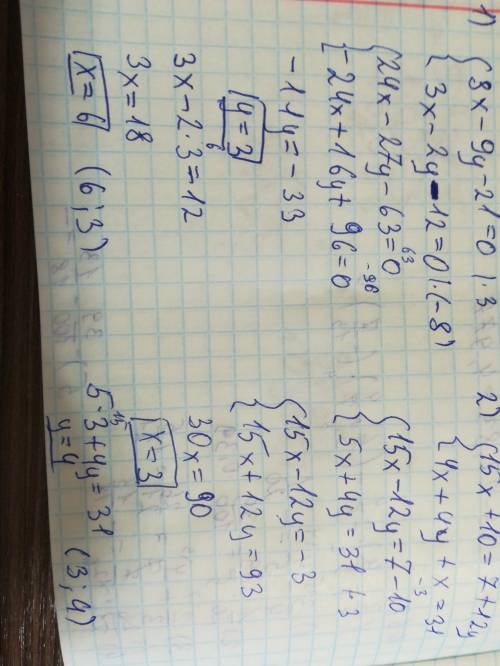 1) { 8x - 9y - 21 = 0 | · 3
{ 3x - 2y - 12 = 0 | · (-8)
{ 24x - 27y - 63 = 0
63
{ -24x + 16y + 96 = 0
-96
-11y = -33
y = 3
6
3x - 2 · 3 = 12
3x = 18
x = 6 (6; 3)
2) { 15x + 10 = 7 + 12y
{ 4x + 4y + x = 31
-3
{ 15x - 12y = 7 - 10
{ 5x + 4y = 31 · 3
{ 15x - 12y = -3
{ 15x + 12y = 93
30x = 90
x = 3
15
5 · 3 + 4y = 31
y = 4 (3; 4)